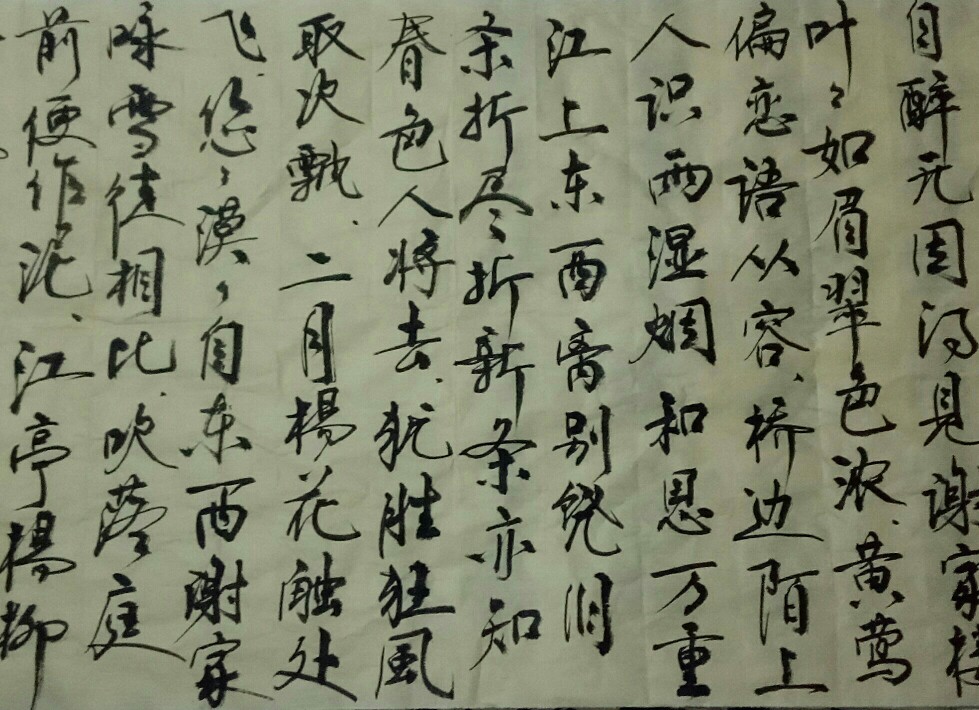 自醉无因得见谢家
叶々如眉翠色浓黄莺
偏恋语从容桥边陌上
人识雨湿烟和恩万重
江上东西离别饶旧
条折尽折新条亦知
春色人将去犹胜狂風
取次飘二月楊花触处
飞悠々漠々自东西谢家
咏雪徒相比吹落庭
前便作泥江亭楊柳